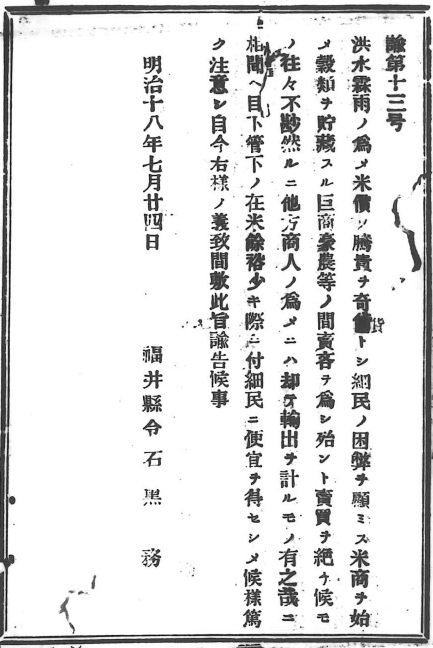 諭第十三号
洪水霖雨ノ爲メ米價ノ騰貴ヲ奇貨トシ細民ノ困弊ヲ顧ミス米商ヲ始
メ穀類ヲ貯藏スル巨商豪農等ノ間賣吝ヲ爲シ殆ント賣買ヲ絶チ候モ
ノ往々不尠然ルニ他方商人ノ爲メニハ却テ輸出ヲ計ルモノ有之哉ニ
相聞ヘ目下管下ノ在米餘裕少キ際ニ付細民ニ便宜ヲ得セシメ候樣篤
ク注意シ自今右樣ノ義致間敷此旨諭告候事
明治十八年七月廿四日
福井縣令石黒務